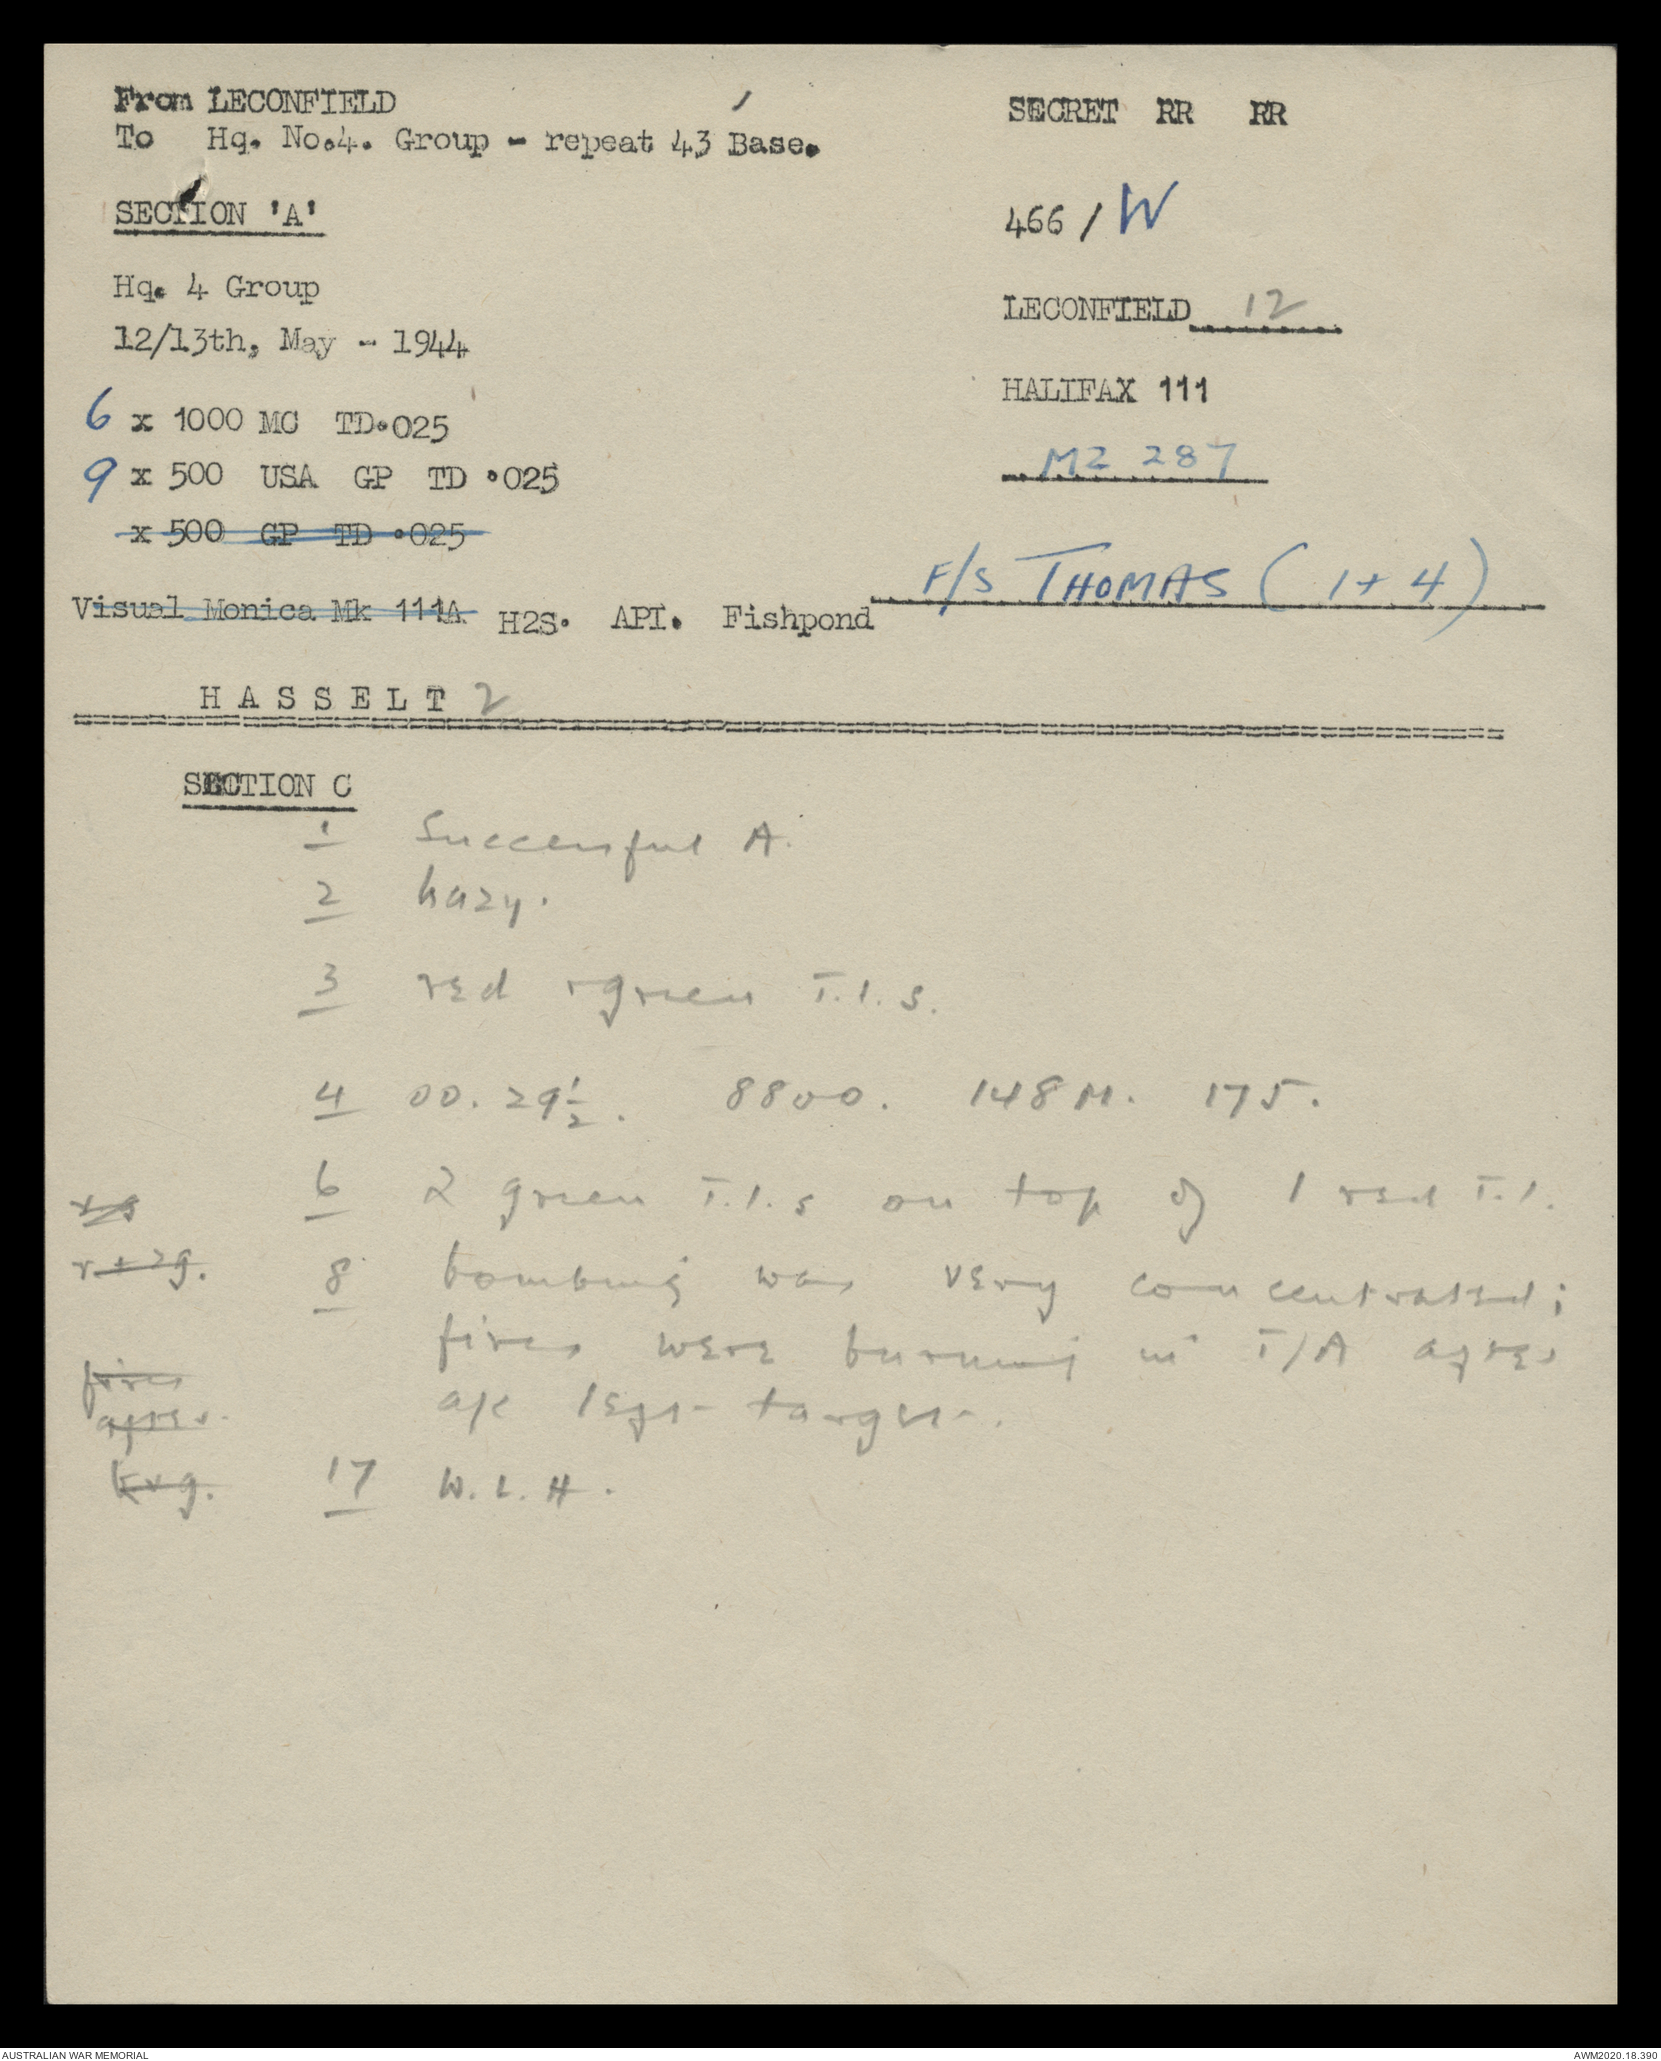 From LECONFIELD
To Hq. No.4. Group - repeat 43 Base.
SECRET RR RR
SECTION 'A'
466 / W
Hq. 4 Group
LECONFIELD 12
12/13th, May - 1944
HALIFAX 111
6 x 1000 MC TD.025
MZ 287
9 x 500 USA GP TD .025
x 500 GP TD .025
F/S THOMAS (1+4)
Visual Monica Mk 111A H2S. API. Fishpond
HASSELT 2
SECTION C
1 Successful A.
2 hazy.
3 red + green T.I.s.
4 00.29½. 8800. 148 M. 175.
6 2 green T.I.s on top of 1 red T.I.
r + 2g.
8 bombing was very concentrated;
fires were burning in T/A after
fires
after
a/c left target.
17 W.L.H.